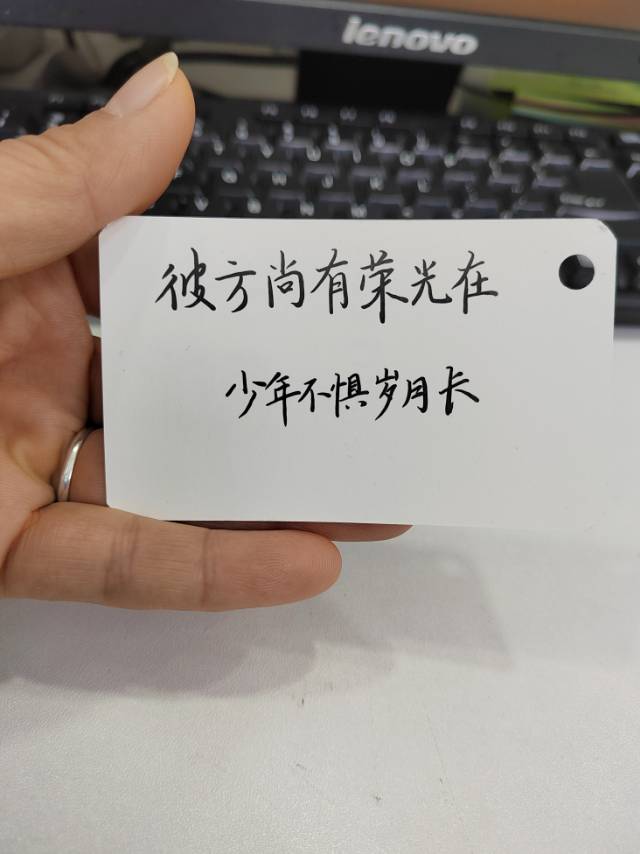 lenovo
彼方尚有荣光在
少年不惧岁月长